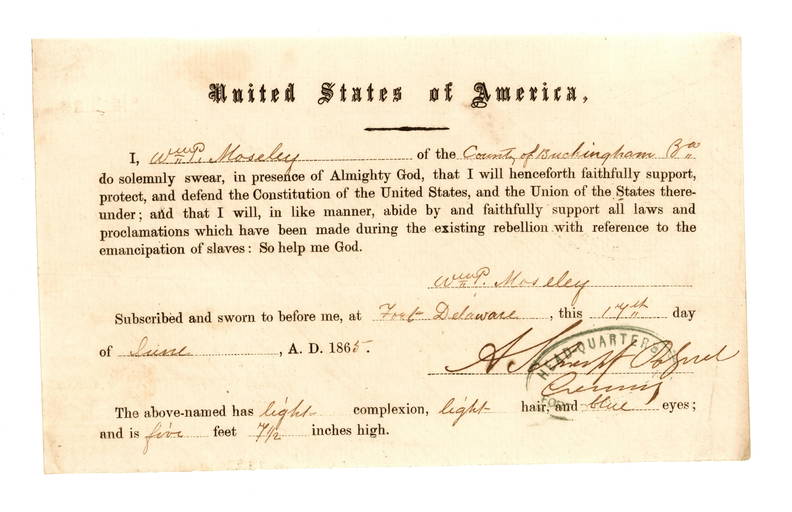 United States of America,
I, Wm. P. Moseley of the County of Buckingham Va
do solemnly swear, in presence of Almighty God, that I will henceforth faithfully support,
protect, and defend the Constitution of the United States, and the Union of the States there-
under; and that I will, in like manner, abide by and faithfully support all laws and
proclamations which have been made during the existing rebellion with reference to the
emancipation of slaves: So help me God.
Wm. P. Moseley
Subscribed and sworn to before me, at Fort Delaware, this 17th day
of June, A. D. 1865.
HEAD-QUARTERS
The above-named has light complexion, light hair, and blue eyes;
and is five feet 7½ inches high.